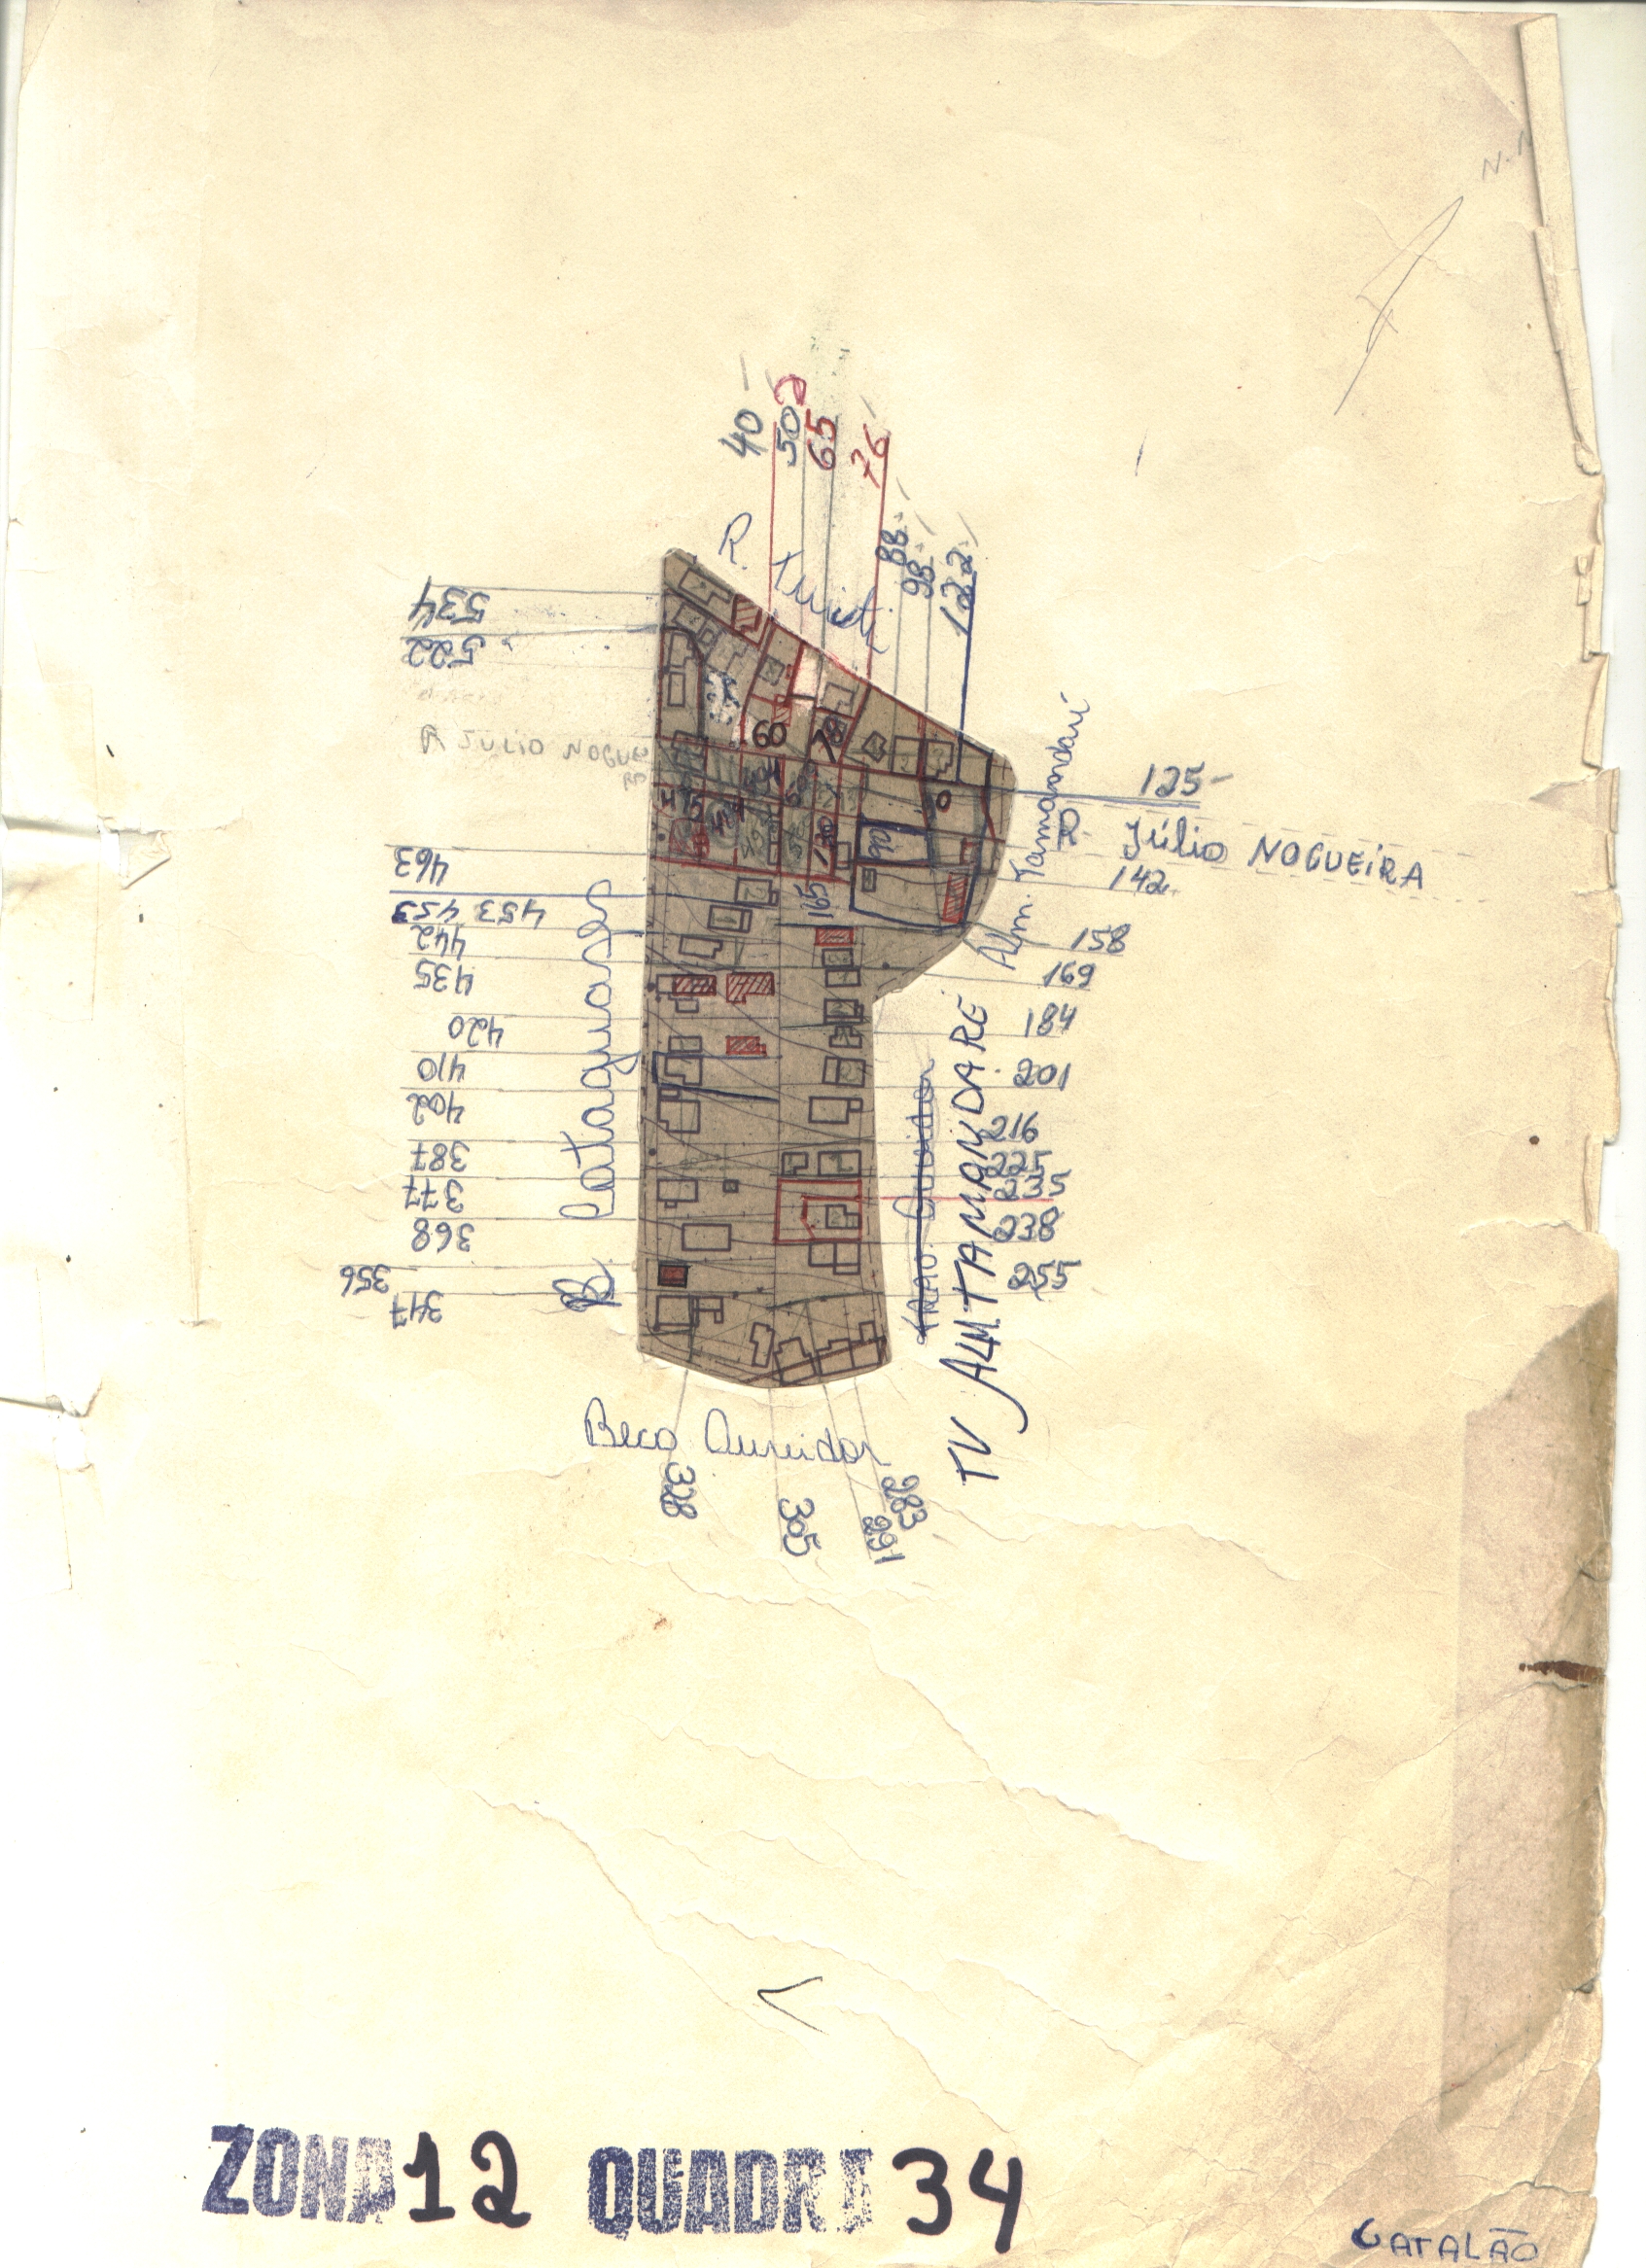 40
50
65
76
88
98
122
R. Tuiuti
534
522
R JULIO NOGUEI
60
125-
R. Júlio NOGUEIRA
142
Alm. Tamandaré
463
453 453
442
435
420
410
402
387
377
368
356
347
R. Cataguases
165
158
169
184
201
216
225
235
238
255
TRAV. Ouvidor
TV ALM TAMANDARÉ
Beco Ouvidor
328
305
291
283
ZONA 12 QUADRA 34
CATALÃO